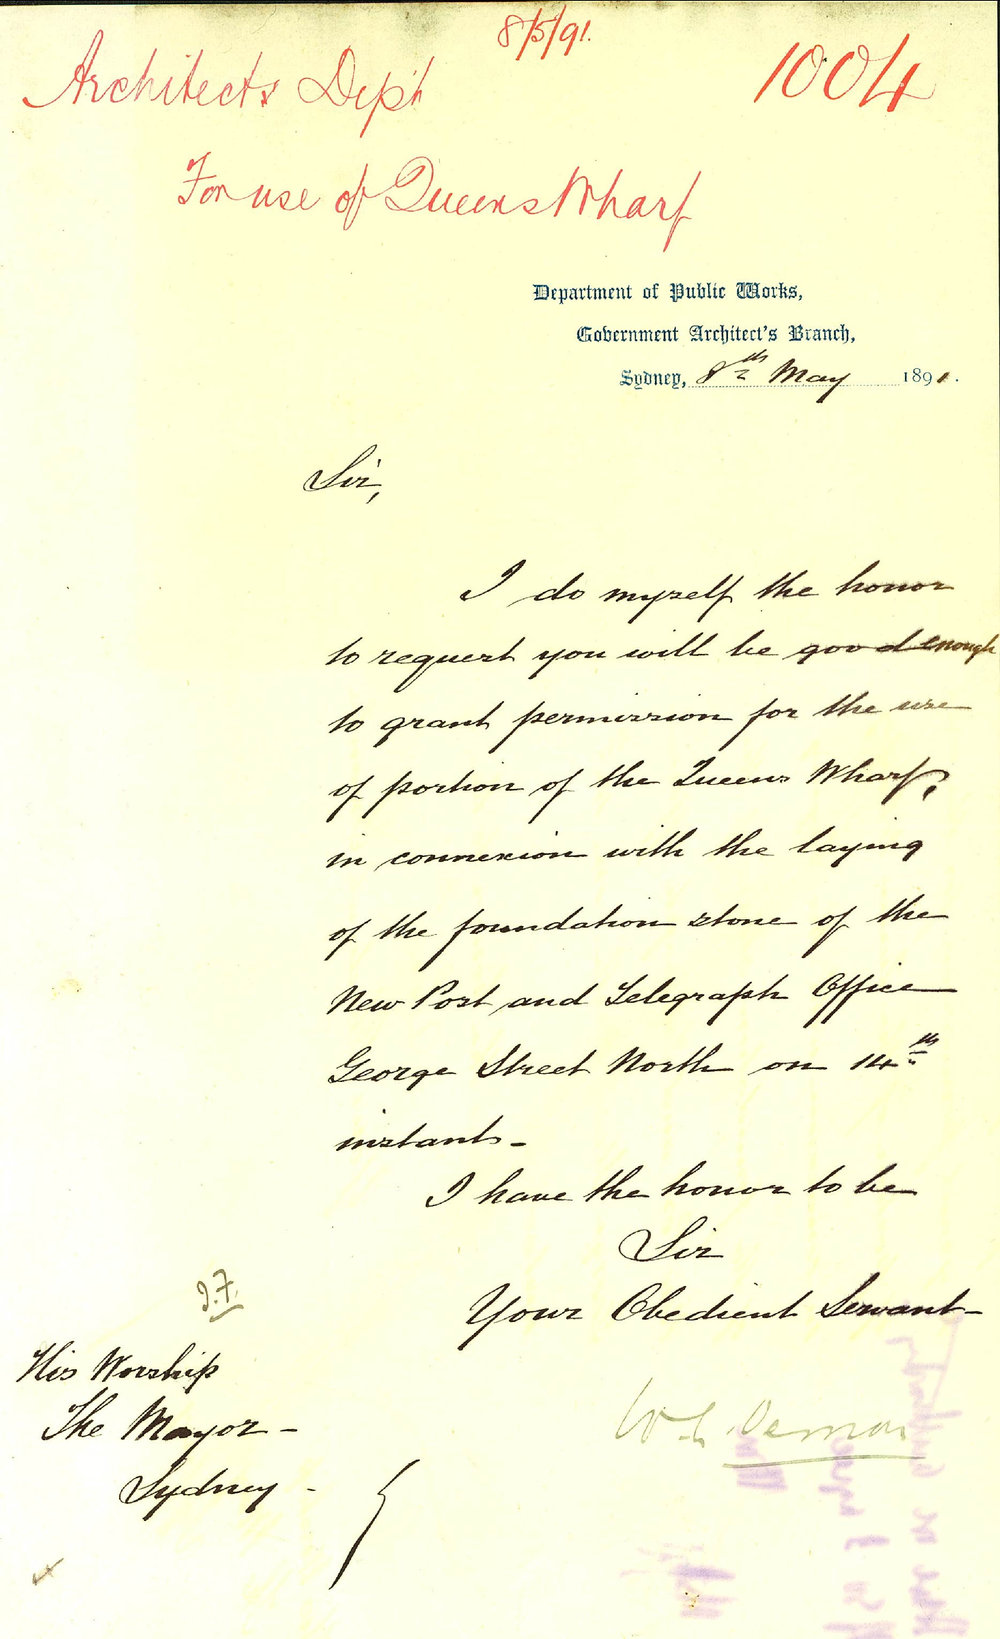 8/5/91.
1004
Architects Dept
For use of Queens Wharf
Department of Public Works,
Government Architect's Branch,
Sydney, 8th May 1891.
Sir,
I do myself the honor
to request you will be good enough
to grant permission for the use
of portion of the Queens Wharf,
in connexion with the laying
of the foundation stone of the
New Post and Telegraph Office
George Street North on 14th
instant -
I have the honor to be
Sir
Your Obedient Servant
W. L. Vernon
J.F.
His Worship
The Mayor -
Sydney -